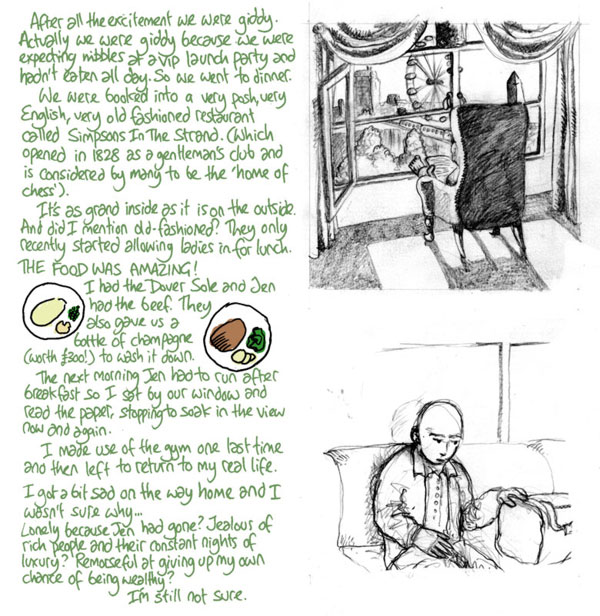 After all the excitement we were giddy.
Actually we were giddy because we were
expecting nibbles at a vip launch party and
hadn't eaten all day. So we went to dinner.
We were booked into a very posh, very
English, very old fashioned restaurant
called Simpsons In The Strand. (Which
opened in 1828 as a gentleman's club and
is considered by many to be the 'home of
chess').
It's as grand inside as it is on the outside.
And did I mention old-fashioned? They only
recently started allowing ladies in for lunch.
THE FOOD WAS AMAZING!
I had the Dover Sole and Jen
had the beef. They
also gave us a
bottle of champagne
(worth £300!) to wash it down.
The next morning Jen had to run after
breakfast so I sat by our window and
read the paper, stopping to soak in the view
now and again.
I made use of the gym one last time
and then left to return to my real life.
I got a bit sad on the way home and I
wasn't sure why...
Lonely because Jen had gone? Jealous of
rich people and their constant nights of
luxury? Remorseful at giving up my own
chance of being wealthy?
I'm still not sure.